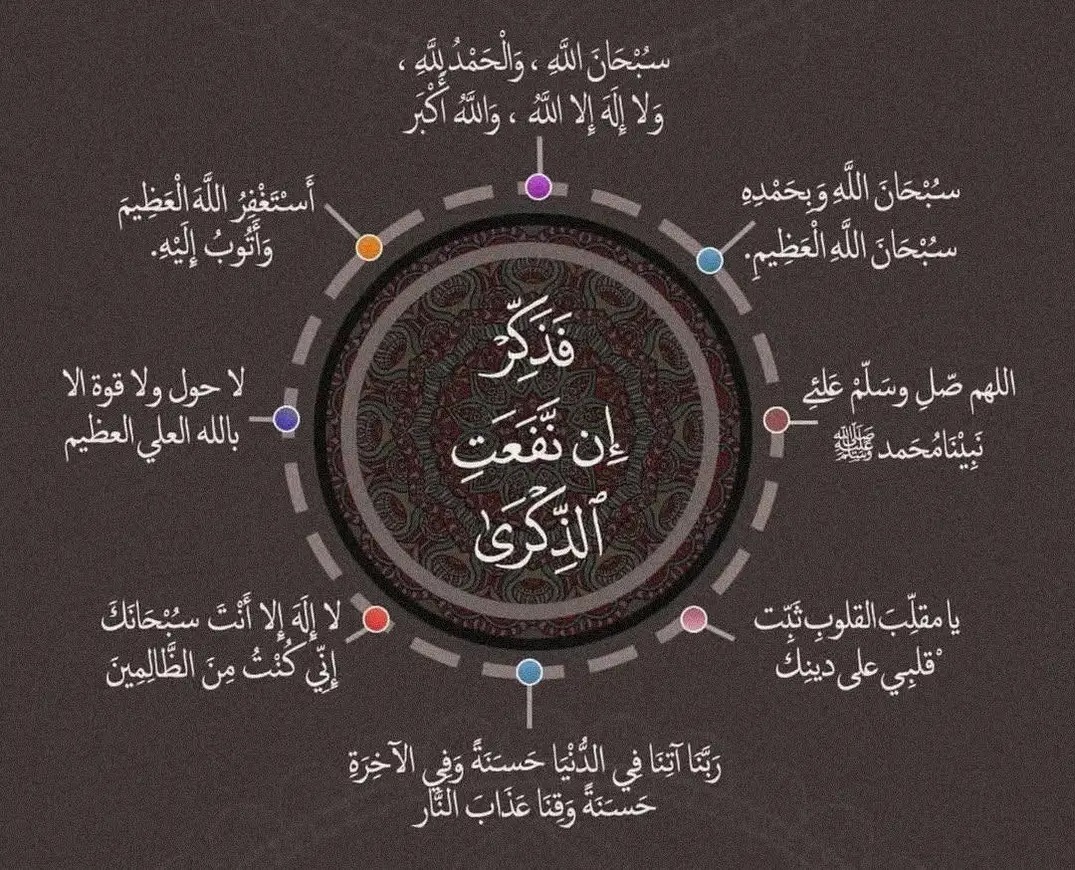 سُبْحَانَ اللَّهِ ، وَالْحَمْدُ لِلَّهِ ،
وَلا إِلَهَ إِلا اللَّهُ ، وَاللَّهُ أَكْبَر
سُبْحَانَ اللَّهِ وَبِحَمْدِهِ
سُبْحَانَ اللَّهِ الْعَظِيمِ.
اللهم صّلِ وسَلّمْ عَلئِ
نَبِيْنَا مُحَمد ﷺ
يا مقلِّبَ القلوبِ ثَبِّت
ْقلبِي على دينِكَ
رَبَّنَا آتِنَا فِي الدُّنْيَا حَسَنَةً وَفِي الآخِرَةِ
حَسَنَةً وَقِنَا عَذَابَ النَّار
لا إِلَهَ إِلا أَنْتَ سُبْحَانَكَ
إِنِّي كُنْتُ مِنَ الظَّالِمِينَ
لا حول ولا قوة الا
بالله العلي العظيم
أَسْتَغْفِرُ اللَّهَ الْعَظِيمَ
وَأَتُوبُ إِلَيْهِ.
فَذَكِّرْ
إِن نَّفَعَتِ
ٱلذِّكْرَىٰ